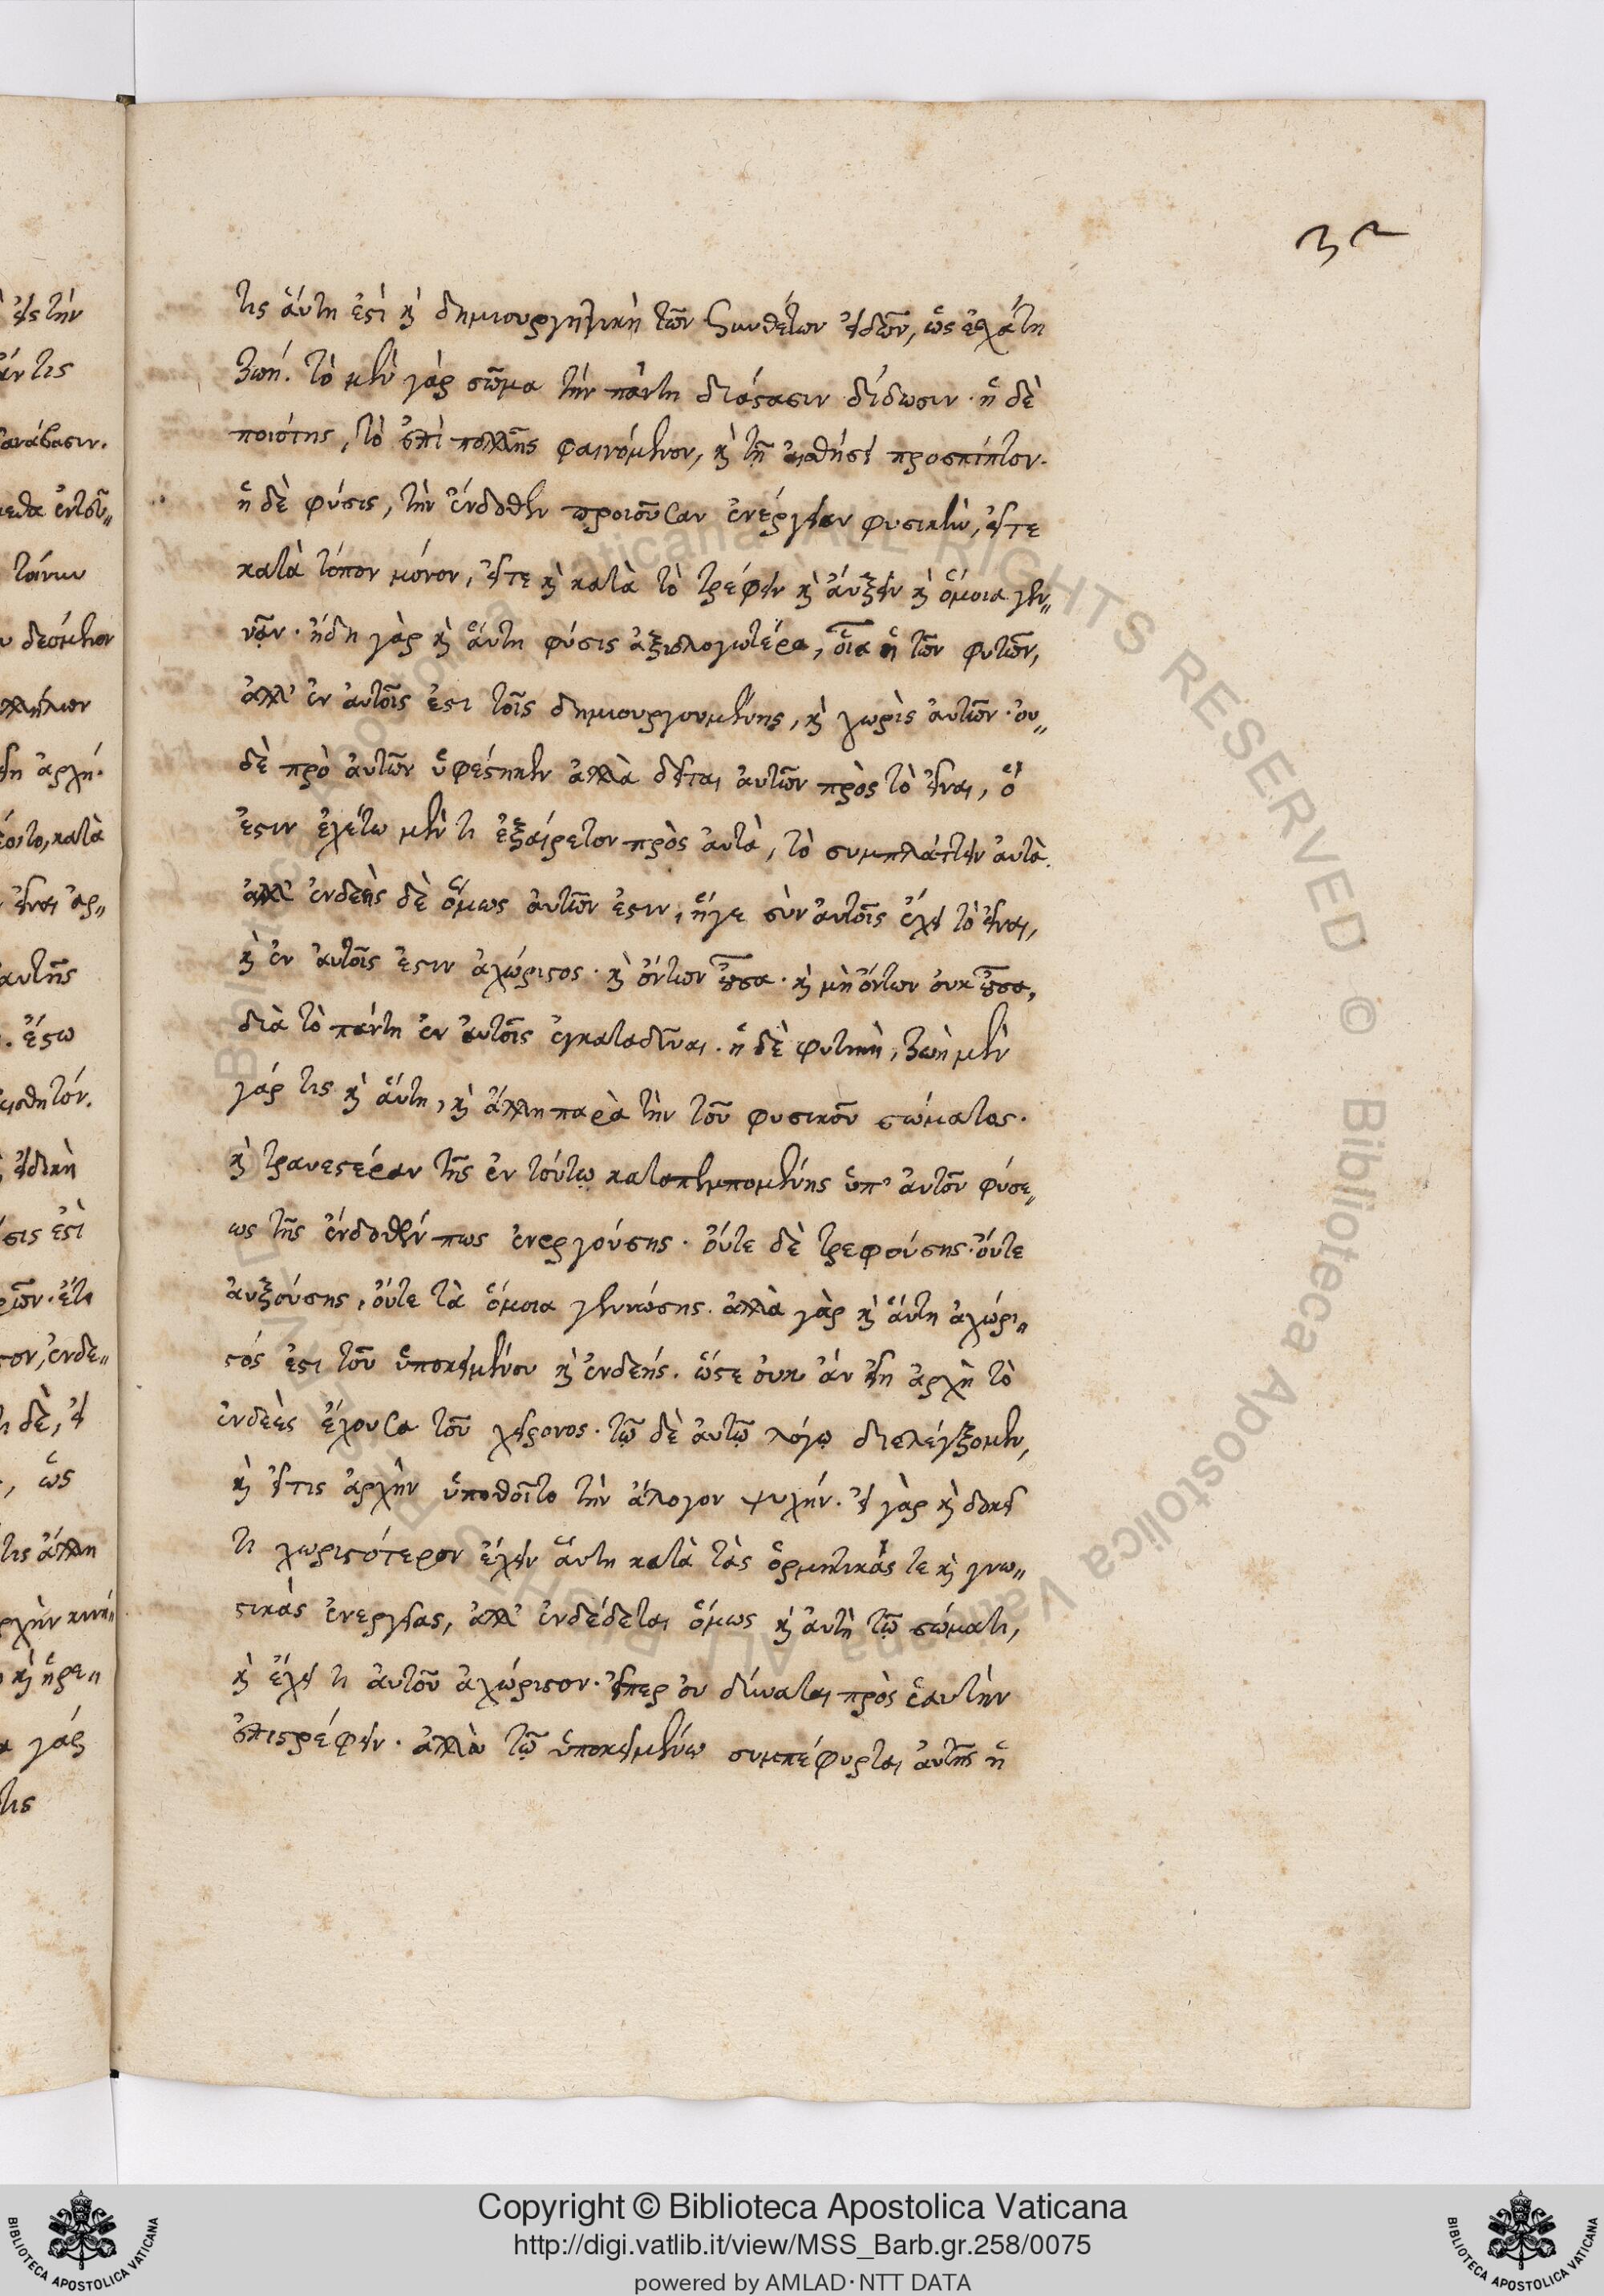 32
τις ἅυτη ἐστὶ κὴ δημιουργητικὴ τῶν συνθέτων εἰδῶν, ὡς ἐσχάτη
ζωή. τὸ μὲν γὰρ σῶμα τὴν πάντη διάστασιν δίδωσιν. ἡ δὲ
ποιότης, τὸ ἐπιπολῆς φαινόμενον, κὴ τῇ αἰσθήσει προσπίπτον.
ἡ δὲ φύσις, τὴν ἔνδοθεν προιοῦσαν ἐνέργειαν φυσικὴν, εἴτε
κατὰ τόπον μόνον, εἴτε κὴ κατὰ τὸ τρέφειν κὴ ἄυξειν κὴ ὅμοια γεν„
νᾶν. ἤδη γὰρ κὴ ἅυτη φύσις ἀξιολογωτέρα, οἵα ἡ τῶν φυτῶν,
ἀλλ' ἐν ἀυτοῖς ἐστι τοῖς δημιουργουμένης, κὴ χωρὶς ἀυτῶν. ὀυ„
δὲ πρὸ ἀυτῶν ὑφέστηκεν ἀλλὰ δεῖται ἀυτῶν πρὸς τὸ εἶναι, ὅ
ἐστιν ἐχέτω μέν τι ἐξαίρετον πρὸς ἀυτὰ, τὸ συμπλάττειν ἀυτὰ.
ἀλλ' ἐνδεὴς δὲ ὅμως ἀυτῶν ἐστιν, ἥγε σὺν ἀυτοῖς ἔχει τὸ εἶναι,
κὴ ἐν ἀυτοῖς ἐστιν ἀχώριστος. κὴ ὄντων οὖσα. κὴ μὴ ὄντων ὀυκ οὖσα,
διὰ τὸ πάντη ἐν ἀυτοῖς ἐγκαταδῦναι. ἡ δὲ φυτικὴ, ζωὴ μὲν
γάρ τις κὴ ἅυτη, κὴ ἄλλη παρὰ τὴν τοῦ φυσικοῦ σώματος.
κὴ τρανεστέραν τῆς ἐν τούτῳ καταπεμπομένης ὑπ' ἀυτοῦ φύσε„
ως τῆς ἔνδοθέν πως ἐνεργούσης. ὄυτε δὲ τρεφούσης. ὄυτε
ἀυξούσης, ὄυτε τὰ ὅμοια γεννώσης. ἀλλὰ γὰρ κὴ ἅυτη ἀχώρι„
στός ἐστι τοῦ ὑποκειμένου κὴ ἐνδεής. ὥστε ὀυκ ἂν εἴη ἀρχὴ τὸ
ἐνδεὲς ἔχουσα τοῦ χείρονος. τῷ δὲ ἀυτῷ λόγῳ διελέγξομεν,
κὴ εἴτις ἀρχὴν ὑποθοῖτο τὴν ἄλογον ψυχήν. εἰ γὰρ κὴ δοκεῖ
τι χωριστότερον ἔχειν ἅυτη κατὰ τὰς ὁρμητικάς τε κὴ γνω„
στικὰς ἐνεργείας, ἀλλ' ἐνδέδεται ὅμως κὴ ἀυτὴ τῷ σώματι,
κὴ ἔχει τι ἀυτοῦ ἀχώριστον. εἴπερ ὀυ δύναται πρὸς ἑαυτὴν
ἐπιστρέφειν. ἀλλὰ τῷ ὑποκειμένω συμπέφυρται ἀυτῆς ἡ
Copyright © Biblioteca Apostolica Vaticana
http://digi.vatlib.it/view/MSS_Barb.gr.258/0075
powered by AMLAD·NTT DATA